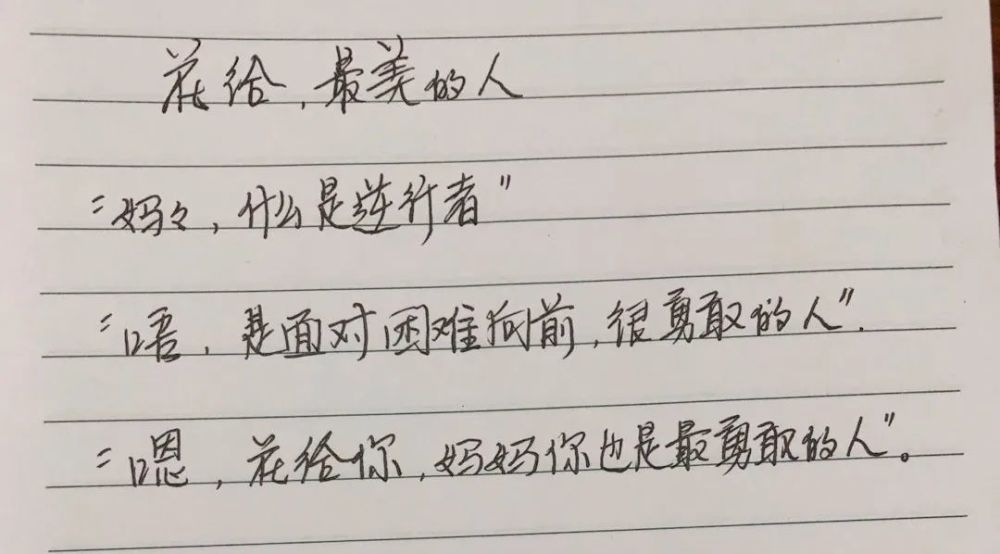 花给,最美的人
"妈々,什么是逆行者"
"唔,是面对困难向前,很勇敢的人".
"嗯,花给你,妈妈你也是最勇敢的人"。